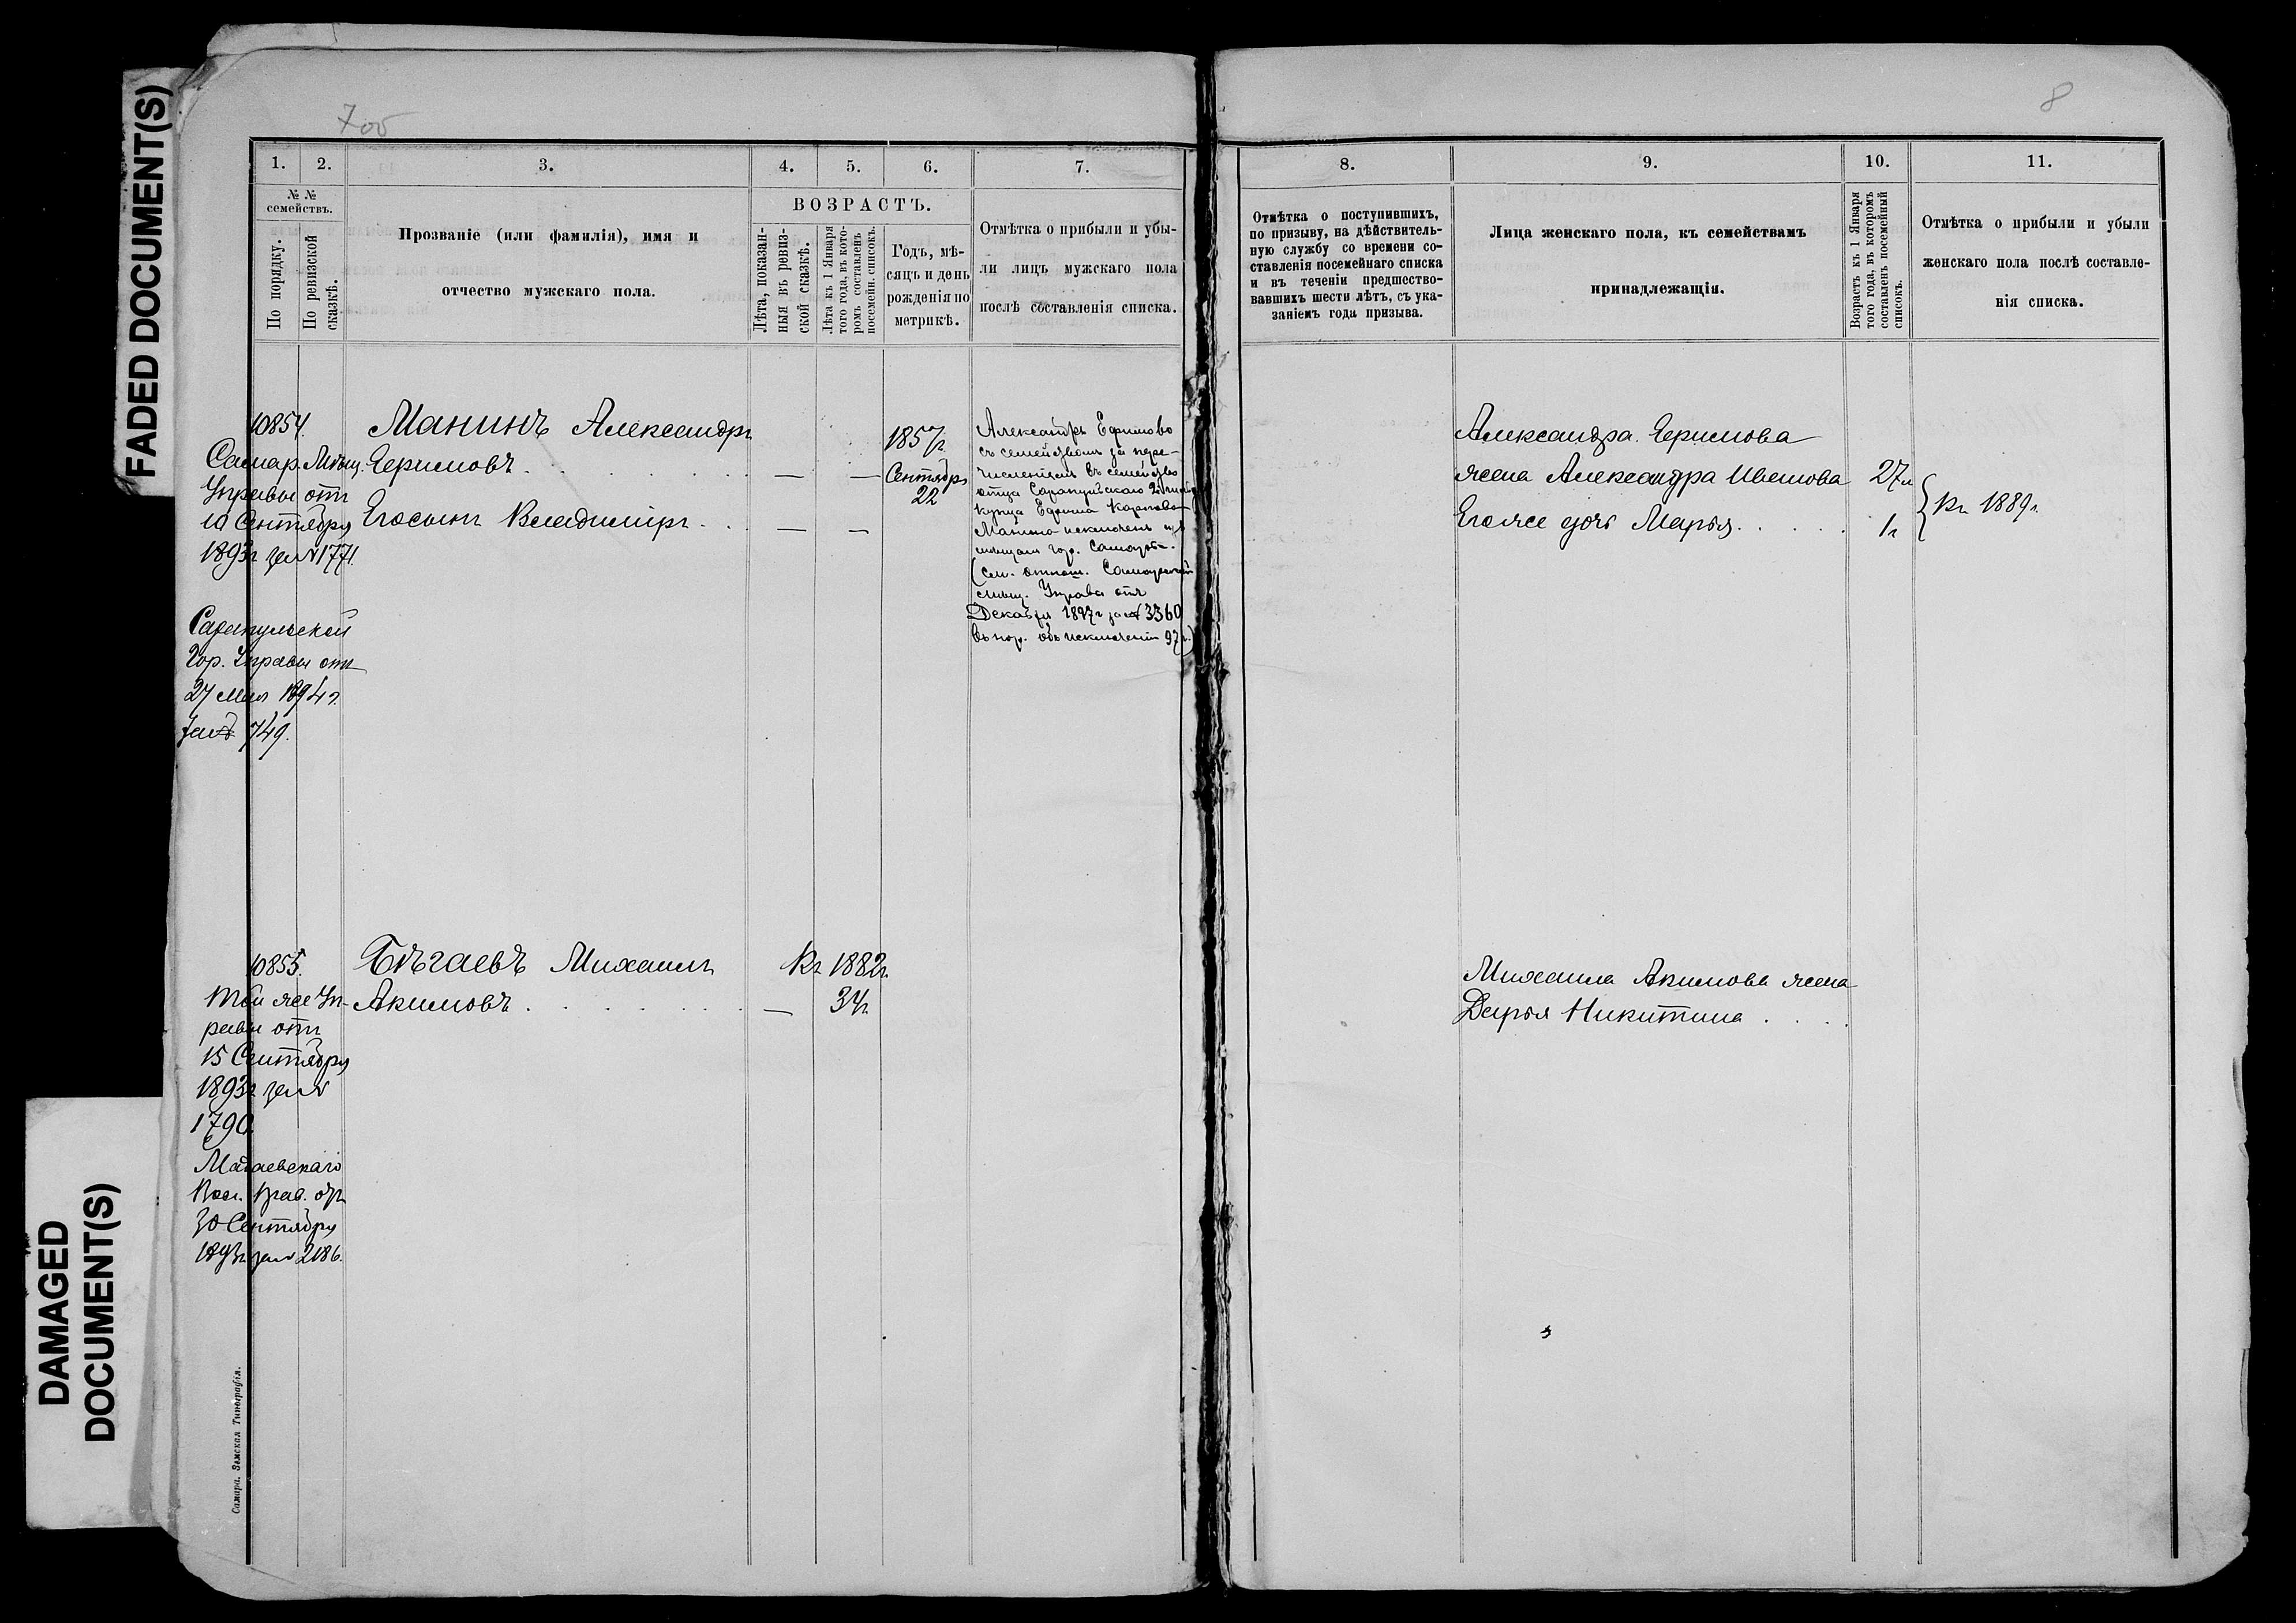 FADED DOCUMENT(S)
DAMAGED DOCUMENT(S)
7об
8
1. 2. 3. 4. 5. 6. 7.
№ №
семействъ.
По порядку.
По ревизской
сказкѣ.
Прозваніе (или фамилія), имя и
отчество мужскаго пола.
ВОЗРАСТЪ.
Лѣта, показан-
ныя въ ревиз-
ской сказкѣ.
Лѣта къ 1 Января
того года, въ кото-
ромъ составленъ
посемейн. списокъ.
Годъ, мѣ-
сяцъ и день
рожденія по
метрикѣ.
Отмѣтка о прибыли и убы-
ли лицъ мужскаго пола
послѣ составленія списка.
10854.
Самар. Мѣщ.
Управы отъ
10 Сентября
1893г за № 1771.
Сарапульской
Гор. Управы отъ
27 Мая 1894г.
за № 749.
Манинъ Александръ
Ефимовъ
Его сынъ Владиміръ
1857г
Сентября
22
Александръ Ефимовъ
съ семействомъ за пере-
численіемъ въ семейство
отца Сарапульскаго 2й гильд
купца Ефима Карпова
Манина исключенъ изъ
мѣщанъ гор. Самары.
(см. отнош. Самарской
мѣщ. Управы отъ
Декабря 1897г за № 3360
въ нар. объ исключеніи 97г.)
10855.
Той же Уп-
равы отъ
15 Сентября
1893г за №
1790.
Вол. Прав. отъ
30 Сентября
1893г за № 2186.
Бѣгаевъ Михаилъ
Акимовъ
Къ 1882г.
34г
Самара. Земская Типографія.
8. 9. 10. 11.
Отмѣтка о поступившихъ,
по призыву, на дѣйствитель-
ную службу со времени со-
ставленія посемейнаго списка
и въ теченіи предшество-
вавшихъ шести лѣтъ, съ ука-
заніемъ года призыва.
Лица женскаго пола, къ семействамъ
принадлежащія.
Возрастъ къ 1 Января
того года, въ которомъ
составленъ посемейный
списокъ.
Отмѣтка о прибыли и убыли
женскаго пола послѣ составле-
нія списка.
Александра Ефимова
жена Александра Иванова 27л
Его же дочь Марья 1г
Къ 1889г.
Михаила Акимова жена
Дарья Никитина